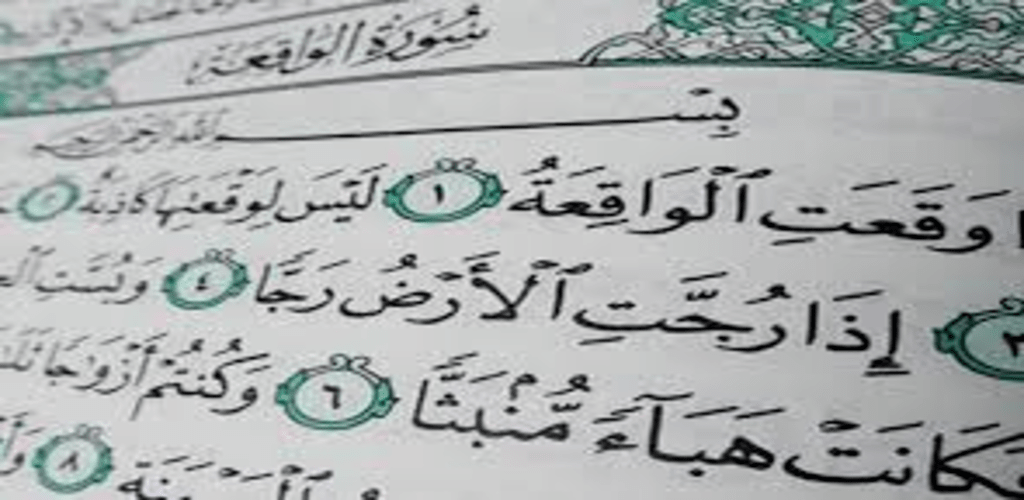 سُورَةُ الْوَاقِعَة
بِسْمِ ٱللَّهِ ٱلرَّحْمَٰنِ ٱلرَّحِيمِ
وَقَعَتِ ٱلْوَاقِعَةُ ١ لَيْسَ لِوَقْعَتِهَا كَاذِبَةٌ ٢
٣ إِذَا رُجَّتِ ٱلْأَرْضُ رَجًّا ٤ وَبُسَّتِ
فَكَانَتْ هَبَآءً مُّنۢبَثًّا ٦ وَكُنتُمْ أَزْوَٰجًا
٨